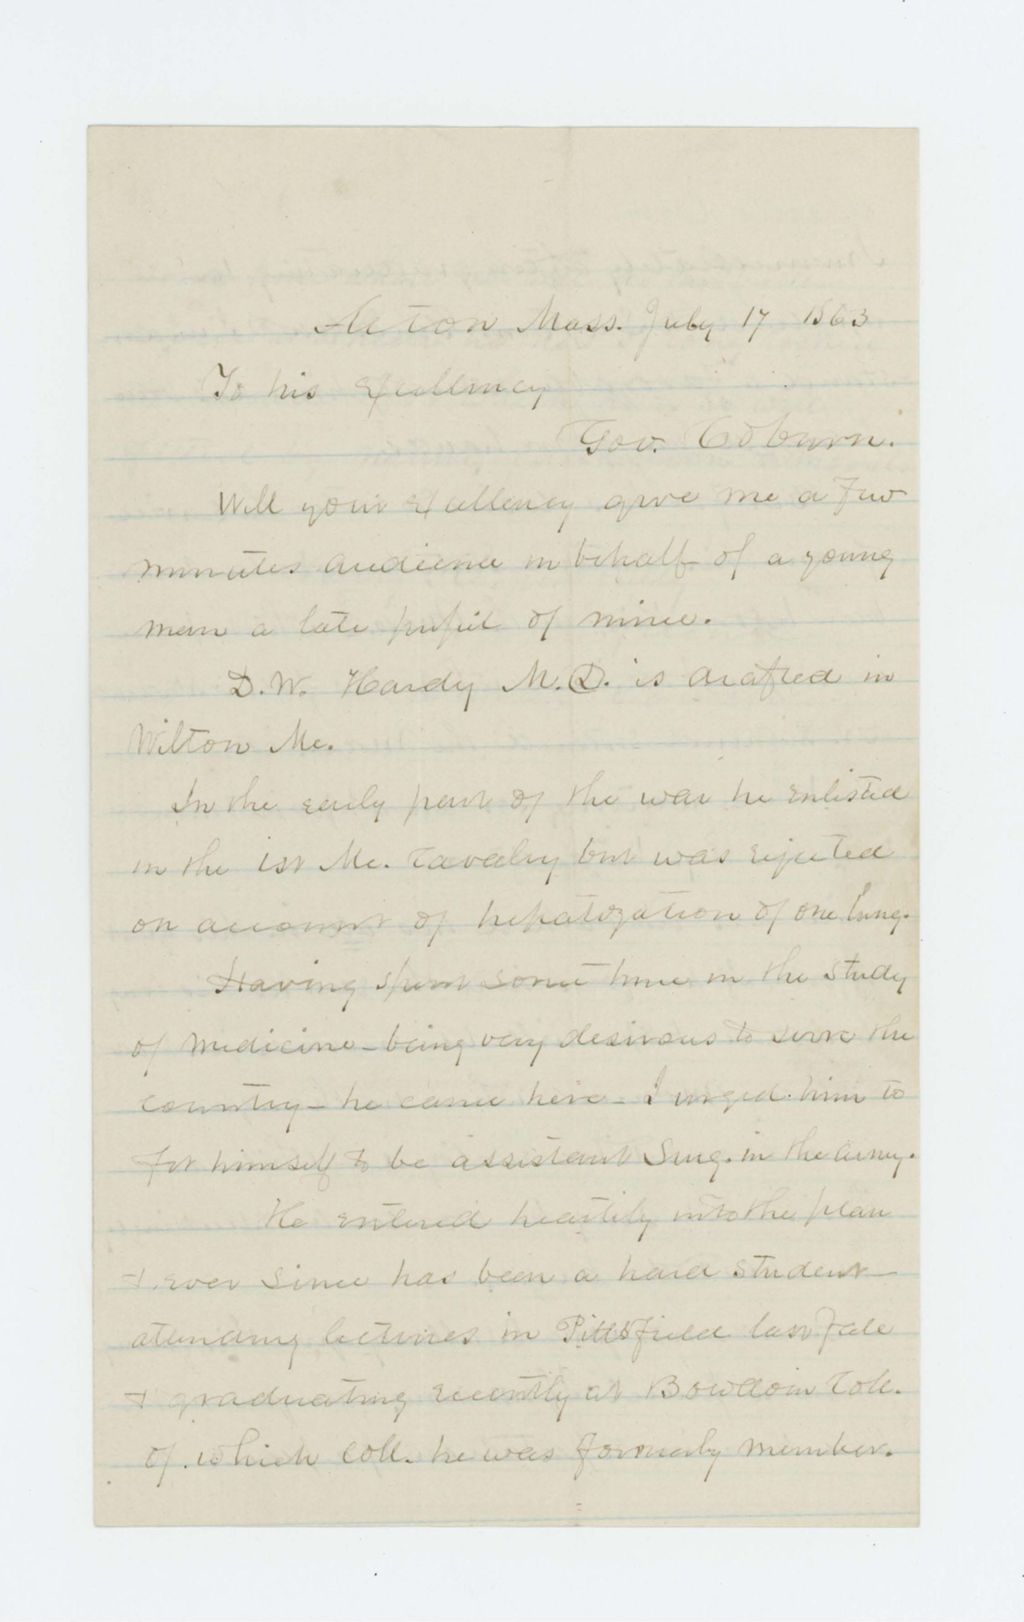 Acton Mass. July 17 1863
To his Excellency
Gov. Coburn.
Will your Excellency give me a few
minutes audience in behalf of a young
man a late pupil of mine.
D. W. Hardy M.D. is drafted in
Wilton Me.
In the early part of the war he enlisted
in the 1st Me. Cavalry but was rejected
on account of hepatization of one lung.
Having spent some time in the study
of medicine - being very desirous to serve the
country - he came here - I urged him to
fit himself to be assistant Surg. in the army.
He entered heartily into the plan
& ever since has been a hard student -
attending lectures in Pittsfield last fall
& graduating recently at Bowdoin Coll.
of which coll. he was formerly member.